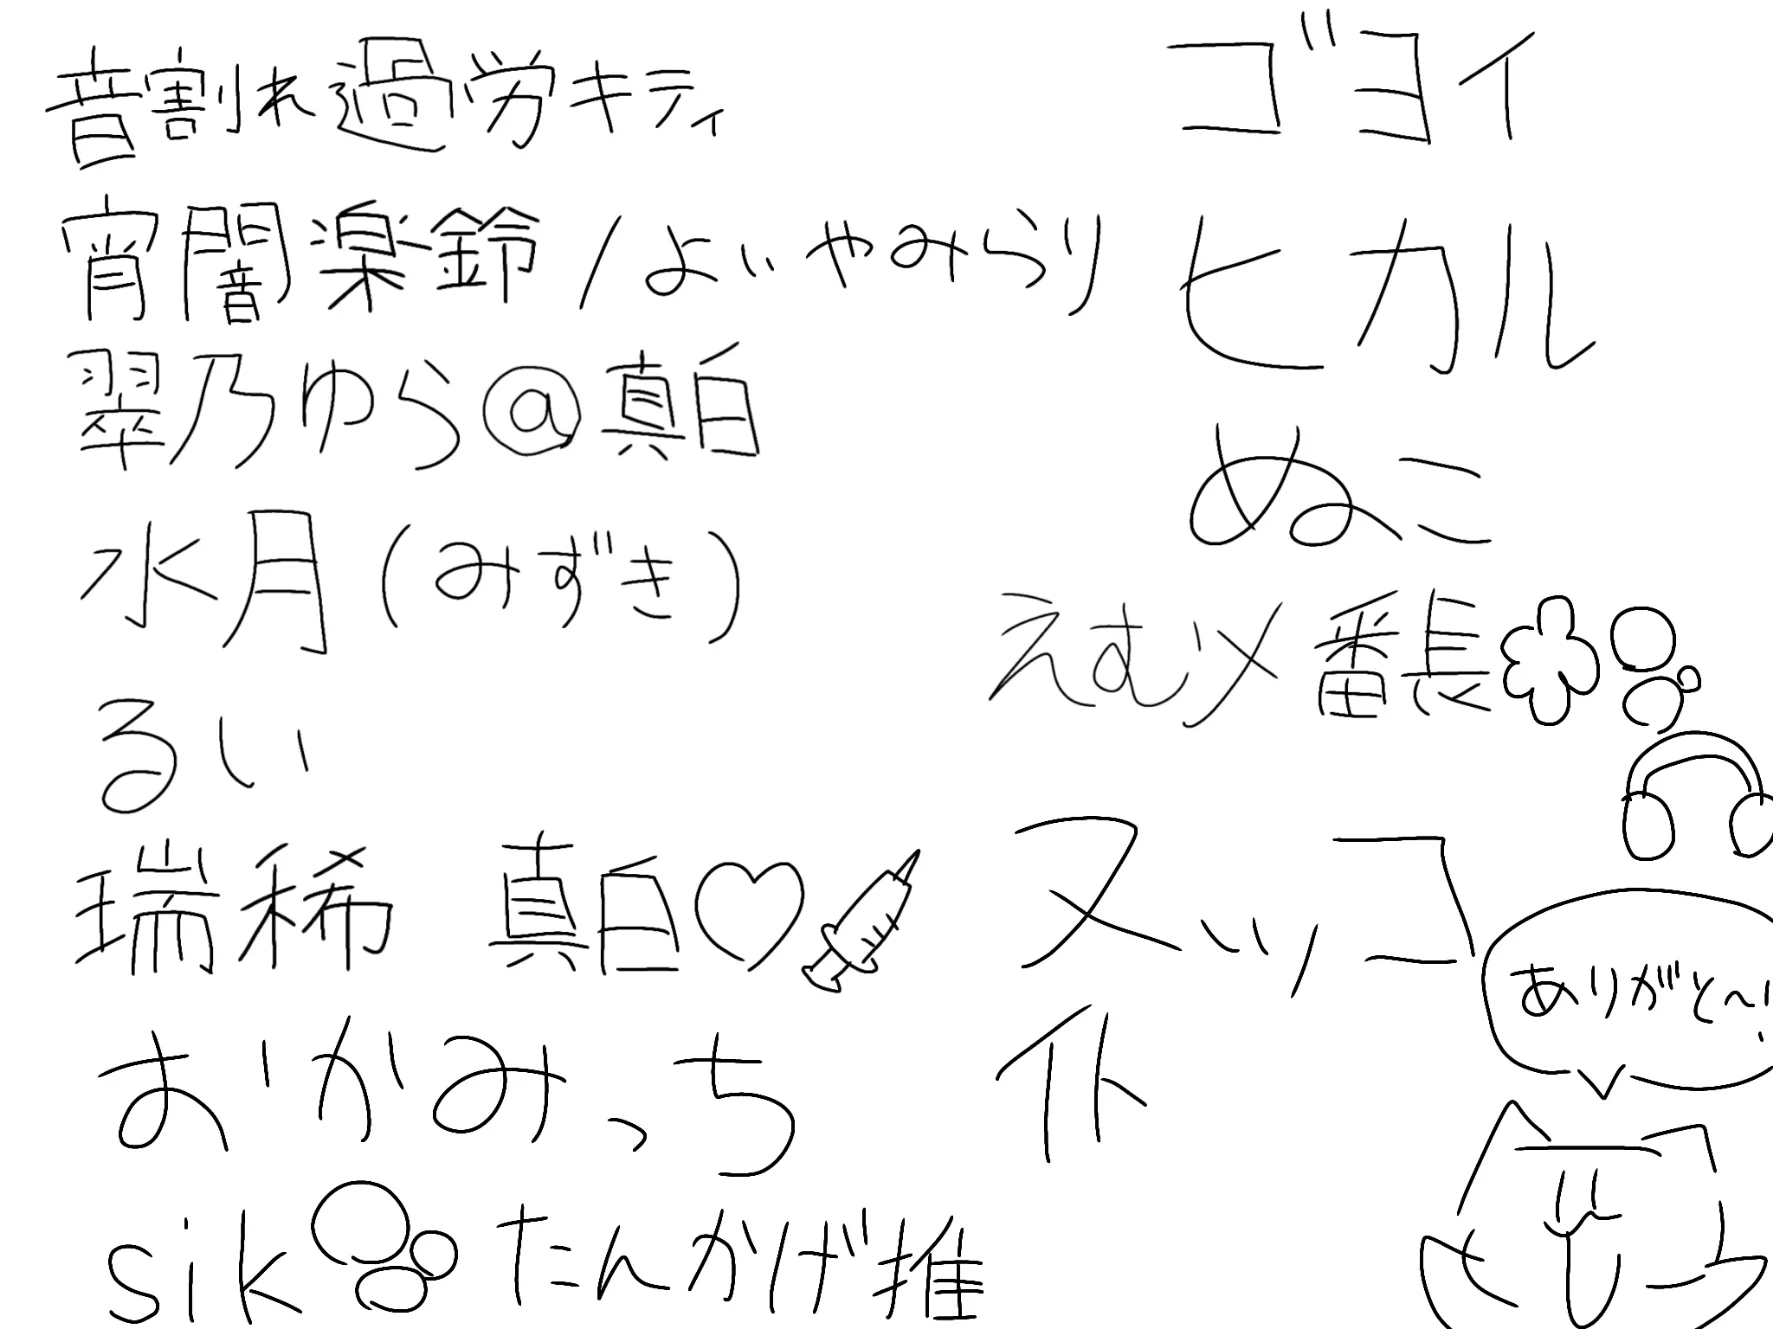 音割れ過労キティ
宵闇楽鈴/よいやみらり
翠乃ゆら@真白
水月(みずき)
るい
瑞稀 真白♡
おかみっち
sik たんかげ推
ゴヨイ
ヒカル
ぬこ
えむ〆番長
ヌッコ
仆
ありがと〜!